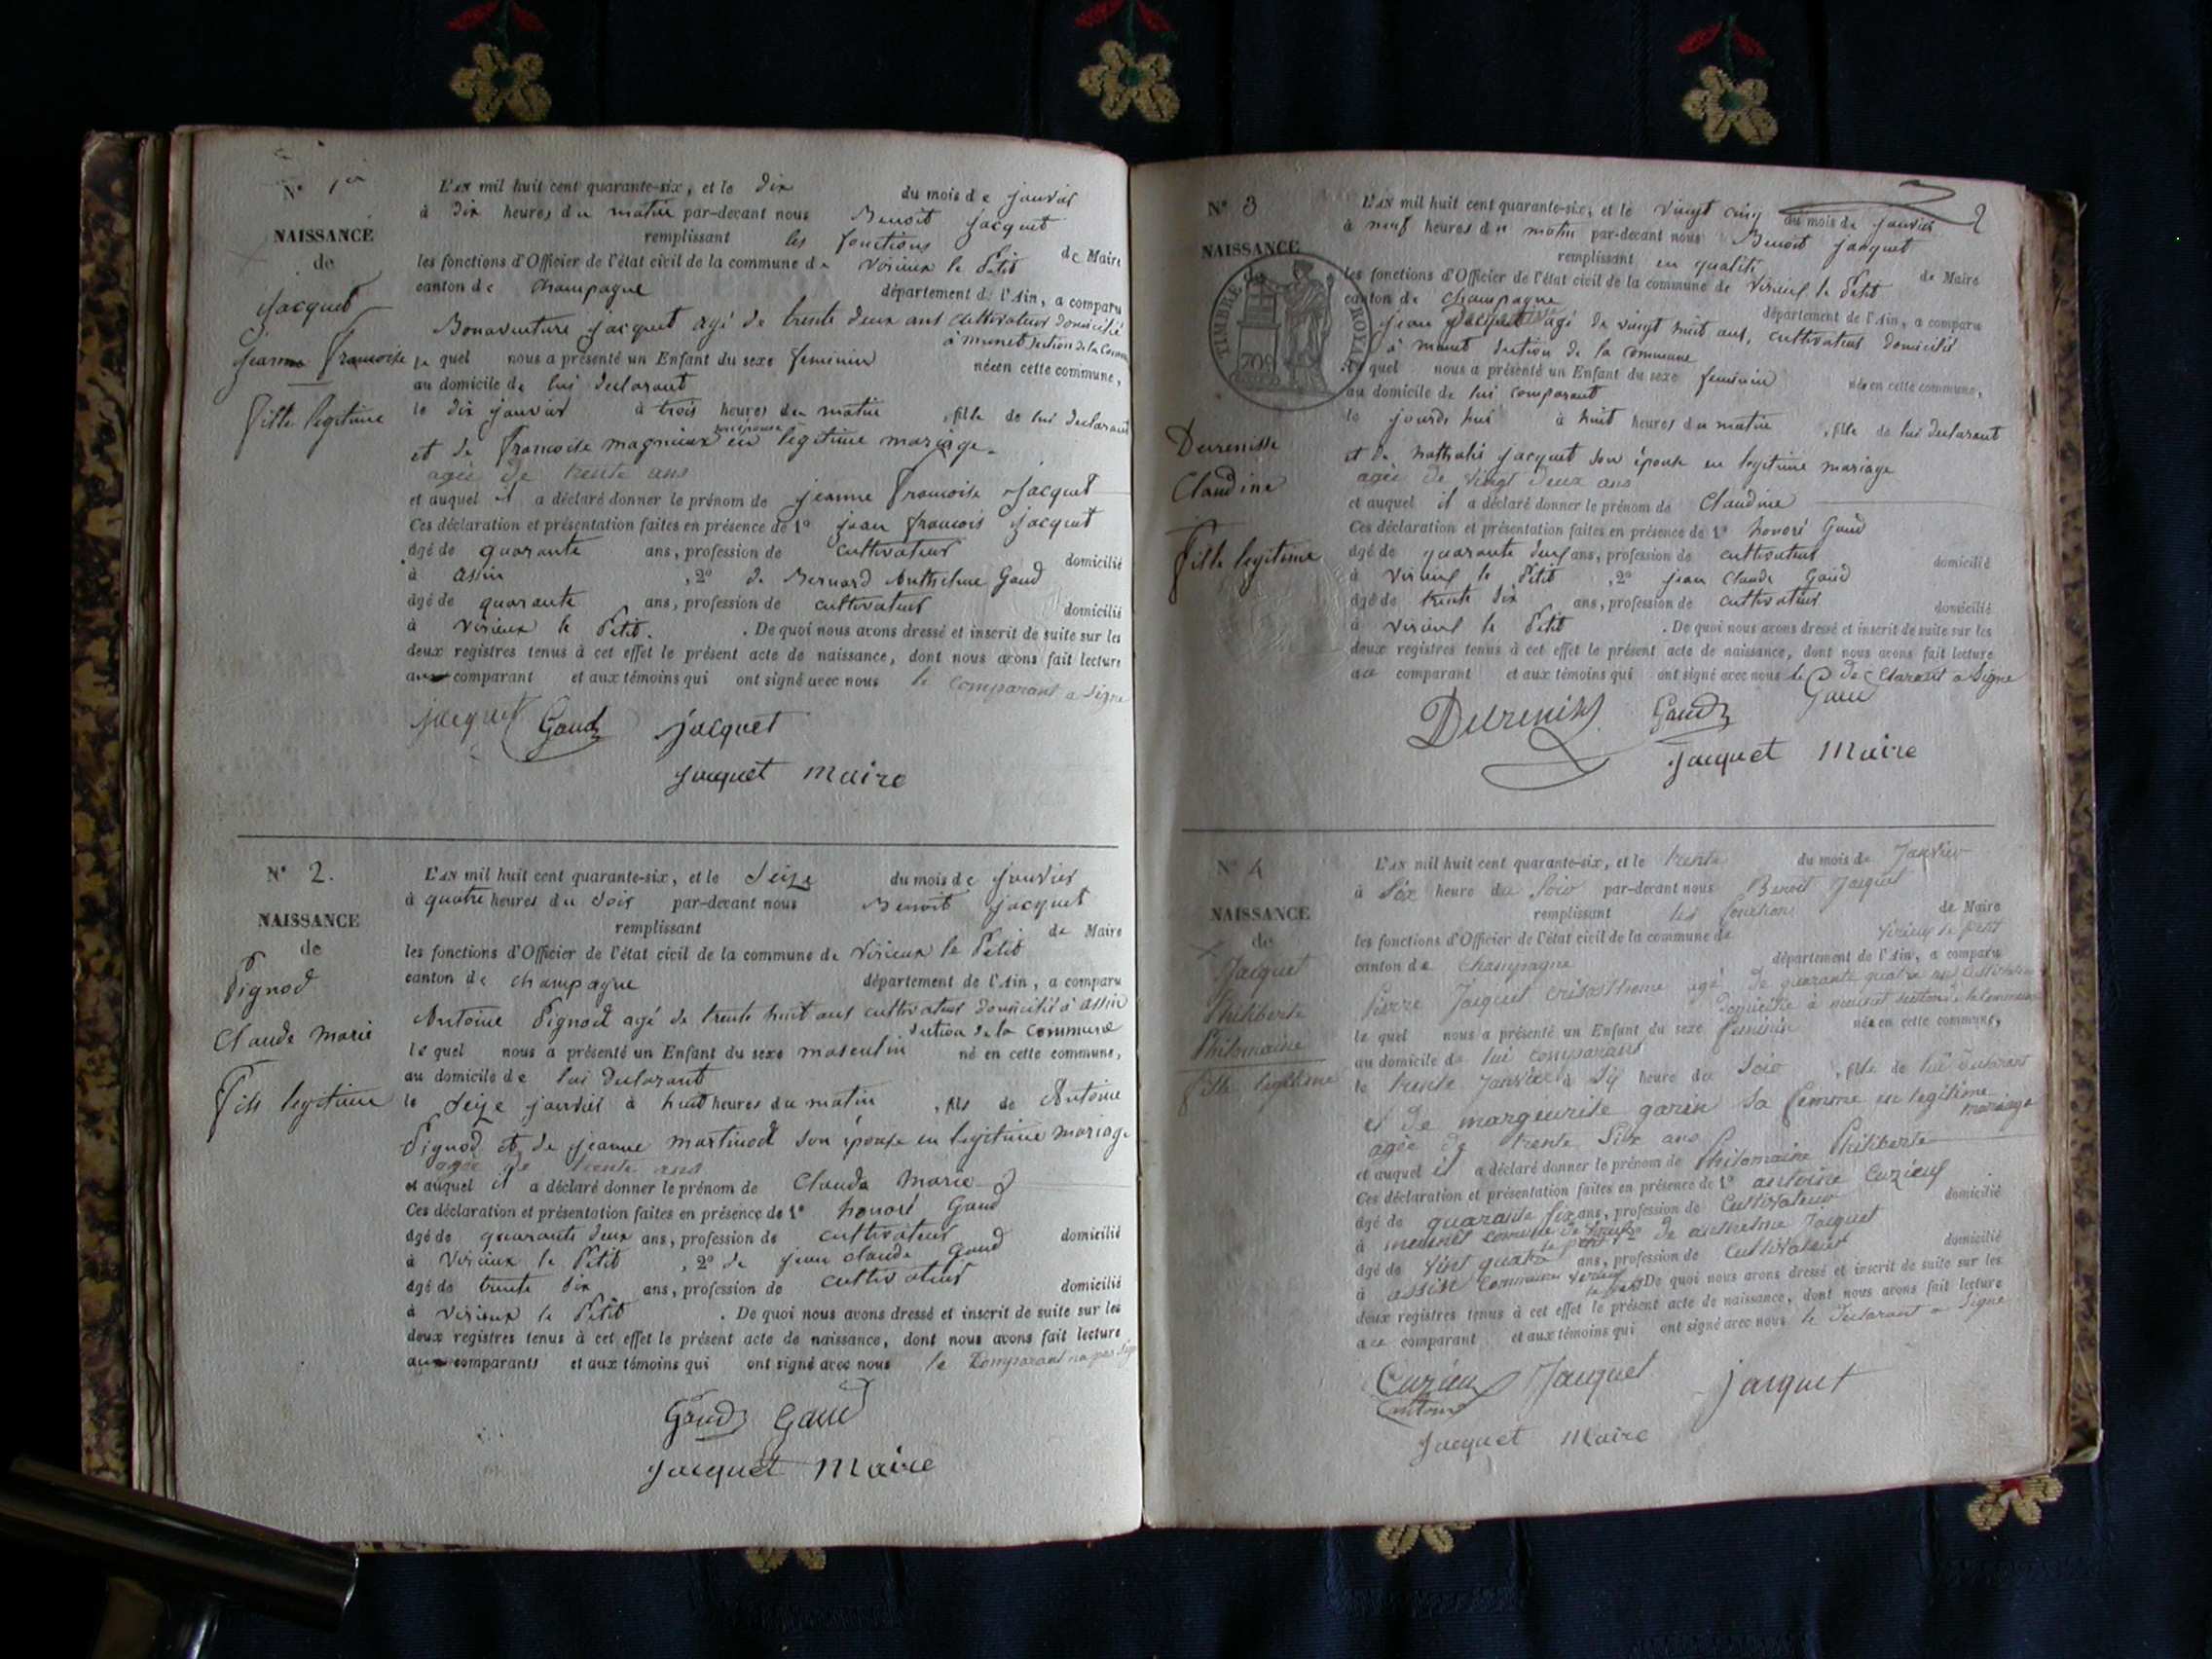 N° 1er
NAISSANCE
de
Jacquet
Jeanne Francoise
Fille legitime
L'AN mil huit cent quarante-six, et le dix du mois de janvier
à dix heures du matin par-devant nous Benoit Jacquet
remplissant les fonctions de Maire
les fonctions d'Officier de l'état civil de la commune de Virieux le Petit
canton de Champagne département de l'Ain, a comparu
Bonaventure Jacquet agé de trente deux ans cultivateur domicilié
à munet section de la Commune
le quel nous a présenté un Enfant du sexe feminin née en cette commune,
au domicile de lui declarant
le dix janvier à trois heures du matin, fille de lui declarant
et de Francoise magnieux son épouse en legitime mariage.
agée de trente ans
et auquel il a déclaré donner le prénom de jeanne Francoise Jacquet
Ces déclaration et présentation faites en présence de 1° jean francois Jacquet
âgé de quarante ans, profession de cultivateur domicilié
à assin, 2° de Bernard Anthelme Gaud
âgé de quarante ans, profession de cultivateur domicilié
à Virieux le Petit. De quoi nous avons dressé et inscrit de suite sur les
deux registres tenus à cet effet le présent acte de naissance, dont nous avons fait lecture
au comparant et aux témoins qui ont signé avec nous le comparant a signé
Jacquet Gaud jacquet
Jacquet Maire
N° 2.
NAISSANCE
de
Pignod
Claude Marie
Fils legitime
L'AN mil huit cent quarante-six, et le Seize du mois de janvier
à quatre heures du soir par-devant nous Benoit Jacquet
remplissant de Maire
les fonctions d'Officier de l'état civil de la commune de Virieux le Petit
canton de Champagne département de l'Ain, a comparu
Antoine Pignod agé de trente huit ans cultivateur domicilié à assin
section de la Commune
le quel nous a présenté un Enfant du sexe masculin né en cette commune,
au domicile de lui declarant
le Seize janvier à huit heures du matin, fils de Antoine
Pignod et de jeanne martinod son épouse en legitime mariage
agée de trente ans
et auquel il a déclaré donner le prénom de Claude Marie
Ces déclaration et présentation faites en présence de 1° honoré Gaud
âgé de quarante deux ans, profession de cultivateur domicilié
à Virieux le Petit, 2° de jean claude Gaud
âgé de trente dix ans, profession de cultivateur domicilié
à Virieux le Petit. De quoi nous avons dressé et inscrit de suite sur les
deux registres tenus à cet effet le présent acte de naissance, dont nous avons fait lecture
aux comparants et aux témoins qui ont signé avec nous le Comparant na pas
Gaud Gaud
Jacquet Maire
2
N° 3
NAISSANCE
de
TIMBRE ROYAL
Devrenisse
Claudine
Fille legitime
L'AN mil huit cent quarante-six, et le vingt cinq du mois de janvier
à neuf heures du matin par-devant nous Benoit Jacquet
remplissant en qualité de Maire
les fonctions d'Officier de l'état civil de la commune de Virieux le Petit
canton de Champagne département de l'Ain, a comparu
jean agé de vingt huit ans, cultivateur domicilié
à munet section de la Commune
le quel nous a présenté un Enfant du sexe feminin née en cette commune,
au domicile de lui comparant
le jourd'hui à huit heures du matin, fille de lui declarant
et de nathalie jacquet son épouse en legitime mariage
agée de vingt deux ans
et auquel il a déclaré donner le prénom de Claudine
Ces déclaration et présentation faites en présence de 1° honoré Gaud
âgé de quarante deux ans, profession de cultivateur domicilié
à Virieux le Petit, 2° jean claude Gaud
âgé de trente dix ans, profession de cultivateur domicilié
à Virieux le Petit. De quoi nous avons dressé et inscrit de suite sur les
deux registres tenus à cet effet le présent acte de naissance, dont nous avons fait lecture
au comparant et aux témoins qui ont signé avec nous le Declarant a Signé
Gaud
Gaud
Jacquet Maire
N° 4
NAISSANCE
de
Jacquet
Philiberte
Philomaine
fille legitime
L'AN mil huit cent quarante-six, et le trente du mois de Janvier
à Six heure du Soir par-devant nous Benoit Jacquet
remplissant les fonctions de Maire
les fonctions d'Officier de l'état civil de la commune de Virieux le petit
canton de Champagne département de l'Ain, a comparu
Pierre Jacquet agé de quarante quatre ans Cultivateur
domicilié à munet section de la Commune
le quel nous a présenté un Enfant du sexe feminin née en cette commune,
au domicile de lui comparant
le trente Janvier à Six heure du Soir, fille de lui declarant
et de margeurite garin sa femme en legitime mariage
agée de trente Six ans
et auquel il a déclaré donner le prénom de Philomaine Philiberte
Ces déclaration et présentation faites en présence de 1° antoine Cuzieux
âgé de quarante six ans, profession de Cultivateur domicilié
à munet commune de Virieux le petit 2° de anthelme Jacquet
âgé de vint quatre ans, profession de Cultivateur domicilié
à assin Commune Virieux le petit De quoi nous avons dressé et inscrit de suite sur les
deux registres tenus à cet effet le présent acte de naissance, dont nous avons fait lecture
au comparant et aux témoins qui ont signé avec nous le declarant a Signé
Cuzieux Jacquet jacquet
antoine
Jacquet Maire